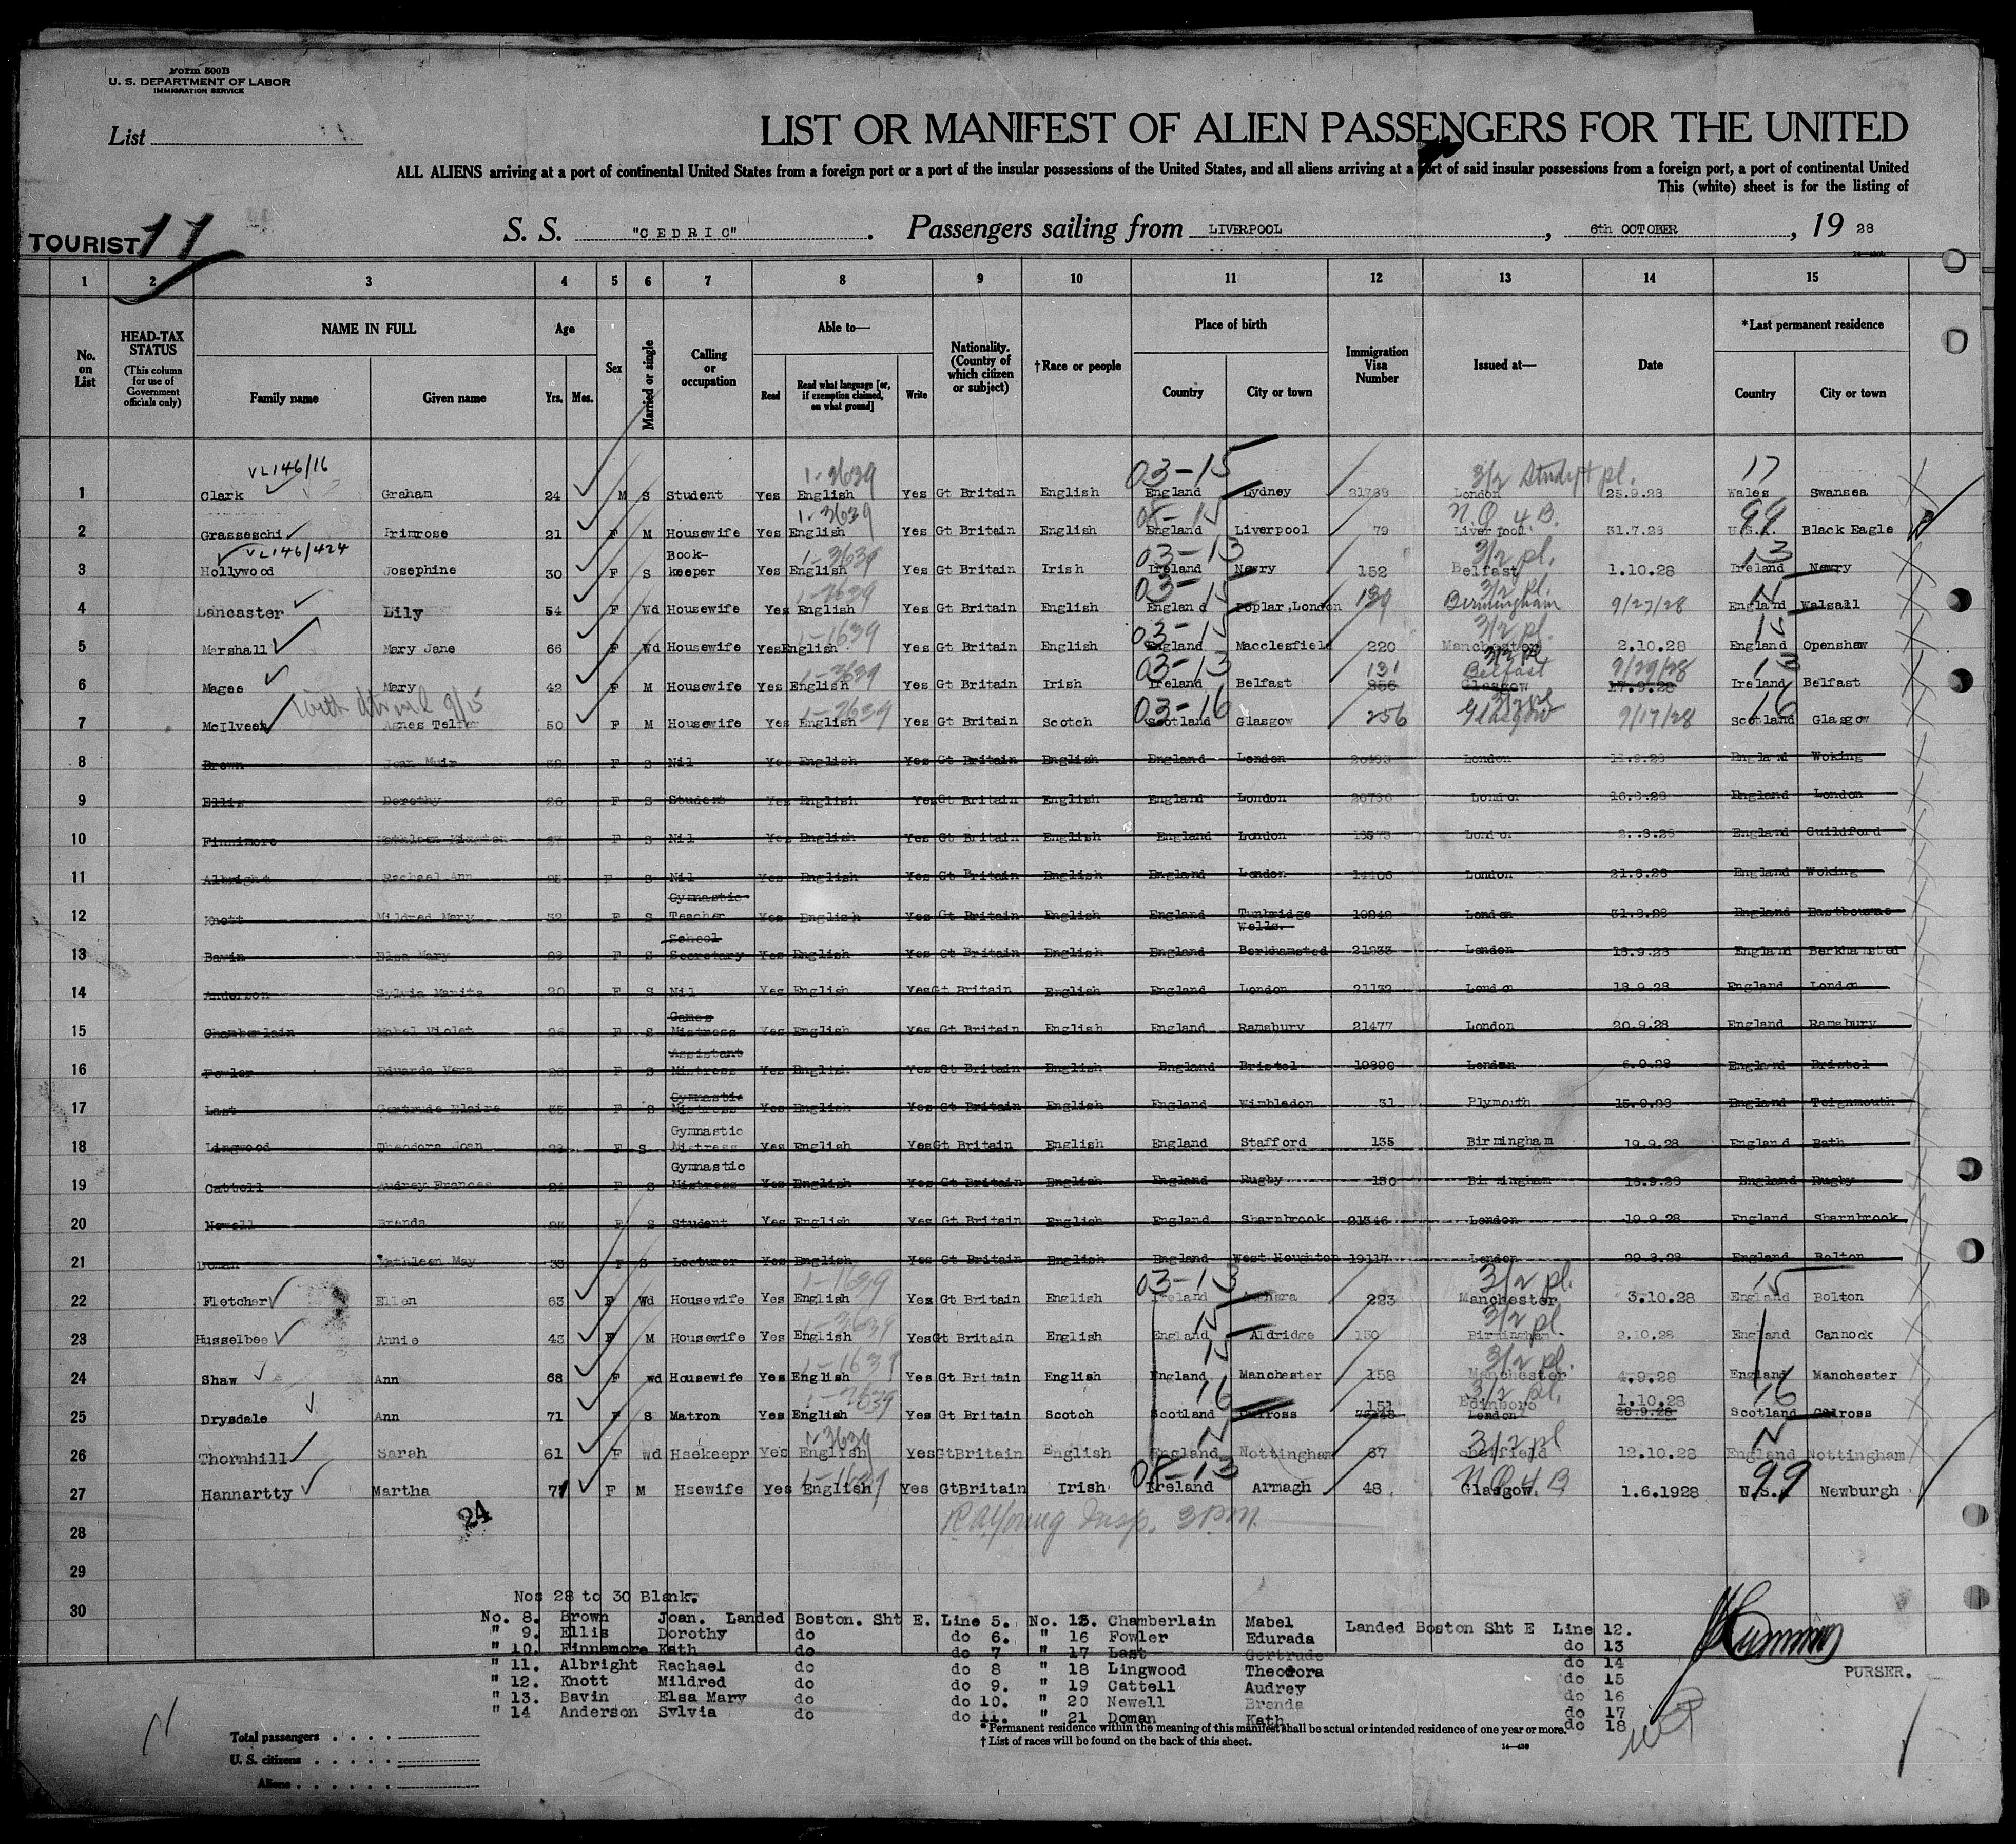 Form 500B
U. S. DEPARTMENT OF LABOR
IMMIGRATION SERVICE
List
LIST OR MANIFEST OF ALIEN PASSENGERS FOR THE UNITED
ALL ALIENS arriving at a port of continental United States from a foreign port or a port of the insular possessions of the United States, and all aliens arriving at a port of said insular possessions from a foreign port, a port of continental United
This (white) sheet is for the listing of
TOURIST 11
S. S. "CEDRIC". Passengers sailing from LIVERPOOL, 6th OCTOBER, 19 28
1 2 3 4 5 6 7 8 9 10 11 12 13 14 15
No. on List
HEAD-TAX STATUS (This column for use of Government officials only)
NAME IN FULL Family name Given name
Age Yrs. Mos.
Sex
Married or single
Calling or occupation
Able to— Read Read what language [or, if exemption claimed, on what ground] Write
Nationality. (Country of which citizen or subject)
†Race or people
Place of birth Country City or town
Immigration Visa Number
Issued at—
Date
*Last permanent residence Country City or town
VL146/16 1-3639 03-15 3/2 Student pl. 17
1 Clark Graham 24 M S Student Yes English Yes Gt Britain English England Lydney London 25.9.28 Wales Swansea
1-3639 N.Q 4 B. 99
2 Grasseschi Primrose 21 F M Housewife Yes English Yes Gt Britain English England Liverpool 79 Liverpool 31.7.28 U.S.A. Black Eagle
VL146/424 1-3639 03-13 3/2 pl. 13
3 Hollywood Josephine 30 F S Book-keeper Yes English Yes Gt Britain Irish Ireland Newry 152 Belfast 1.10.28 Ireland Newry
03-15 3/2 pl.
4 Lancaster Lily 54 F Wd Housewife Yes English Yes Gt Britain English England Poplar, London 139 Birmingham 9/27/28 England Walsall
1-1639 03-15 3/2 pl. 15
5 Marshall Mary Jane 66 F Wd Housewife Yes English Yes Gt Britain English England Macclesfield 220 Manchester 2.10.28 England Openshaw
1-3639 03-13 131 3/2 pl Belfast 9/29/28 13
6 Magee Mary 42 F M Housewife Yes English Yes Gt Britain Irish Ireland Belfast 256 Glasgow 17.9.28 Ireland Belfast
03-16 3/2 pl 16
7 McIlveen Agnes Telfer 50 F M Housewife Yes English Yes Gt Britain Scotch Scotland Glasgow 256 Glasgow 9/17/28 Scotland Glasgow
8 Brown Joan Muir F S Nil Yes English Yes Gt Britain English England London London England Woking
9 Ellis Dorothy 26 F S Student Yes English Yes Gt Britain English England London London England London
10 Finnimore F S Nil Yes English Yes Gt Britain English England London London England Guildford
11 Albright Rachael Ann F S Nil Yes English Yes Gt Britain English England London London England Woking
12 Knott Mildred Mary F S Gymnastic Teacher Yes English Yes Gt Britain English England Tunbridge Wells. London England Eastbourne
13 Bavin Elsa Mary F S School Secretary Yes English Yes Gt Britain English England Berkhamsted 21933 London England Berkhamsted
14 Anderson Sylvia Manita 20 F S Nil Yes English Yes Gt Britain English England London 21132 London 18.9.28 England London
15 Chamberlain Mabel Violet 26 F S Games Mistress Yes English Yes Gt Britain English England Ramsbury 21477 London 20.9.28 England Ramsbury
16 Fowler Eduarda Vera F S Assistant Mistress Yes English Yes Gt Britain English England Bristol London England Bristol
17 Last Gertrude Elaire F S Gymnastic Mistress Yes English Yes Gt Britain English England Wimbledon 31 Plymouth England Teignmouth
18 Lingwood Theodora Joan F S Gymnastic Mistress Yes English Yes Gt Britain English England Stafford 135 Birmingham 19.9.28 England Bath
19 Cattell Audrey Frances F S Gymnastic Mistress Yes English Yes Gt Britain English England Rugby 130 Birmingham England Rugby
20 Newell Brenda F S Student Yes English Yes Gt Britain English England Sharnbrook 21346 London 19.9.28 England Sharnbrook
21 Doman Kathleen May F S Lecturer Yes English Yes Gt Britain English England West Houghton 19117 London England Bolton
1-1639 03-13 3/2 pl. 15
22 Fletcher Ellen 63 F Wd Housewife Yes English Yes Gt Britain English Ireland 223 Manchester 3.10.28 England Bolton
1-3639 15 3/2 pl
23 Husselbee Annie 43 F M Housewife Yes English Yes Gt Britain English England Aldridge 150 Birmingham 2.10.28 England Cannock
1-1639 15 3/2 pl.
24 Shaw Ann 68 F Wd Housewife Yes English Yes Gt Britain English England Manchester 158 Manchester 4.9.28 England Manchester
16 151 3/2 pl. Edinboro 1.10.28 16
25 Drysdale Ann 71 F S Matron Yes English Yes Gt Britain Scotch Scotland Culross London 28.9.28 Scotland Culross
3639 3/2 pl
26 Thornhill Sarah 61 F Wd Hsekeepr Yes English Yes GtBritain English England Nottingham 67 Sheffield 12.10.28 England Nottingham
1-1639 N.Q 4 B 99
27 Hannartty Martha 71 F M Hsewife Yes English Yes GtBritain Irish Ireland Armagh 48 Glasgow. 1.6.1928 U.S. Newburgh
24
28 R A Young Insp. 3 P.M.
29
30
Nos 28 to 30 Blank.
No. 8. Brown Joan. Landed Boston. Sht E. Line 5. No. 15. Chamberlain Mabel Landed Boston Sht E Line 12.
" 9. Ellis Dorothy do do 6. " 16 Fowler Edurada do 13
" 10. Finnamore Kath do do 7 " 17 Last Gertrude do 14
" 11. Albright Rachael do do 8 " 18 Lingwood Theodora do 15
" 12. Knott Mildred do do 9. " 19 Cattell Audrey do 16
" 13. Bavin Elsa Mary do do 10. " 20 Newell Brenda do 17
" 14 Anderson Sylvia do do 11. " 21 Doman Kath do 18
PURSER.
Total passengers
U. S. citizens
Aliens
* Permanent residence within the meaning of this manifest shall be actual or intended residence of one year or more.
† List of races will be found on the back of this sheet.